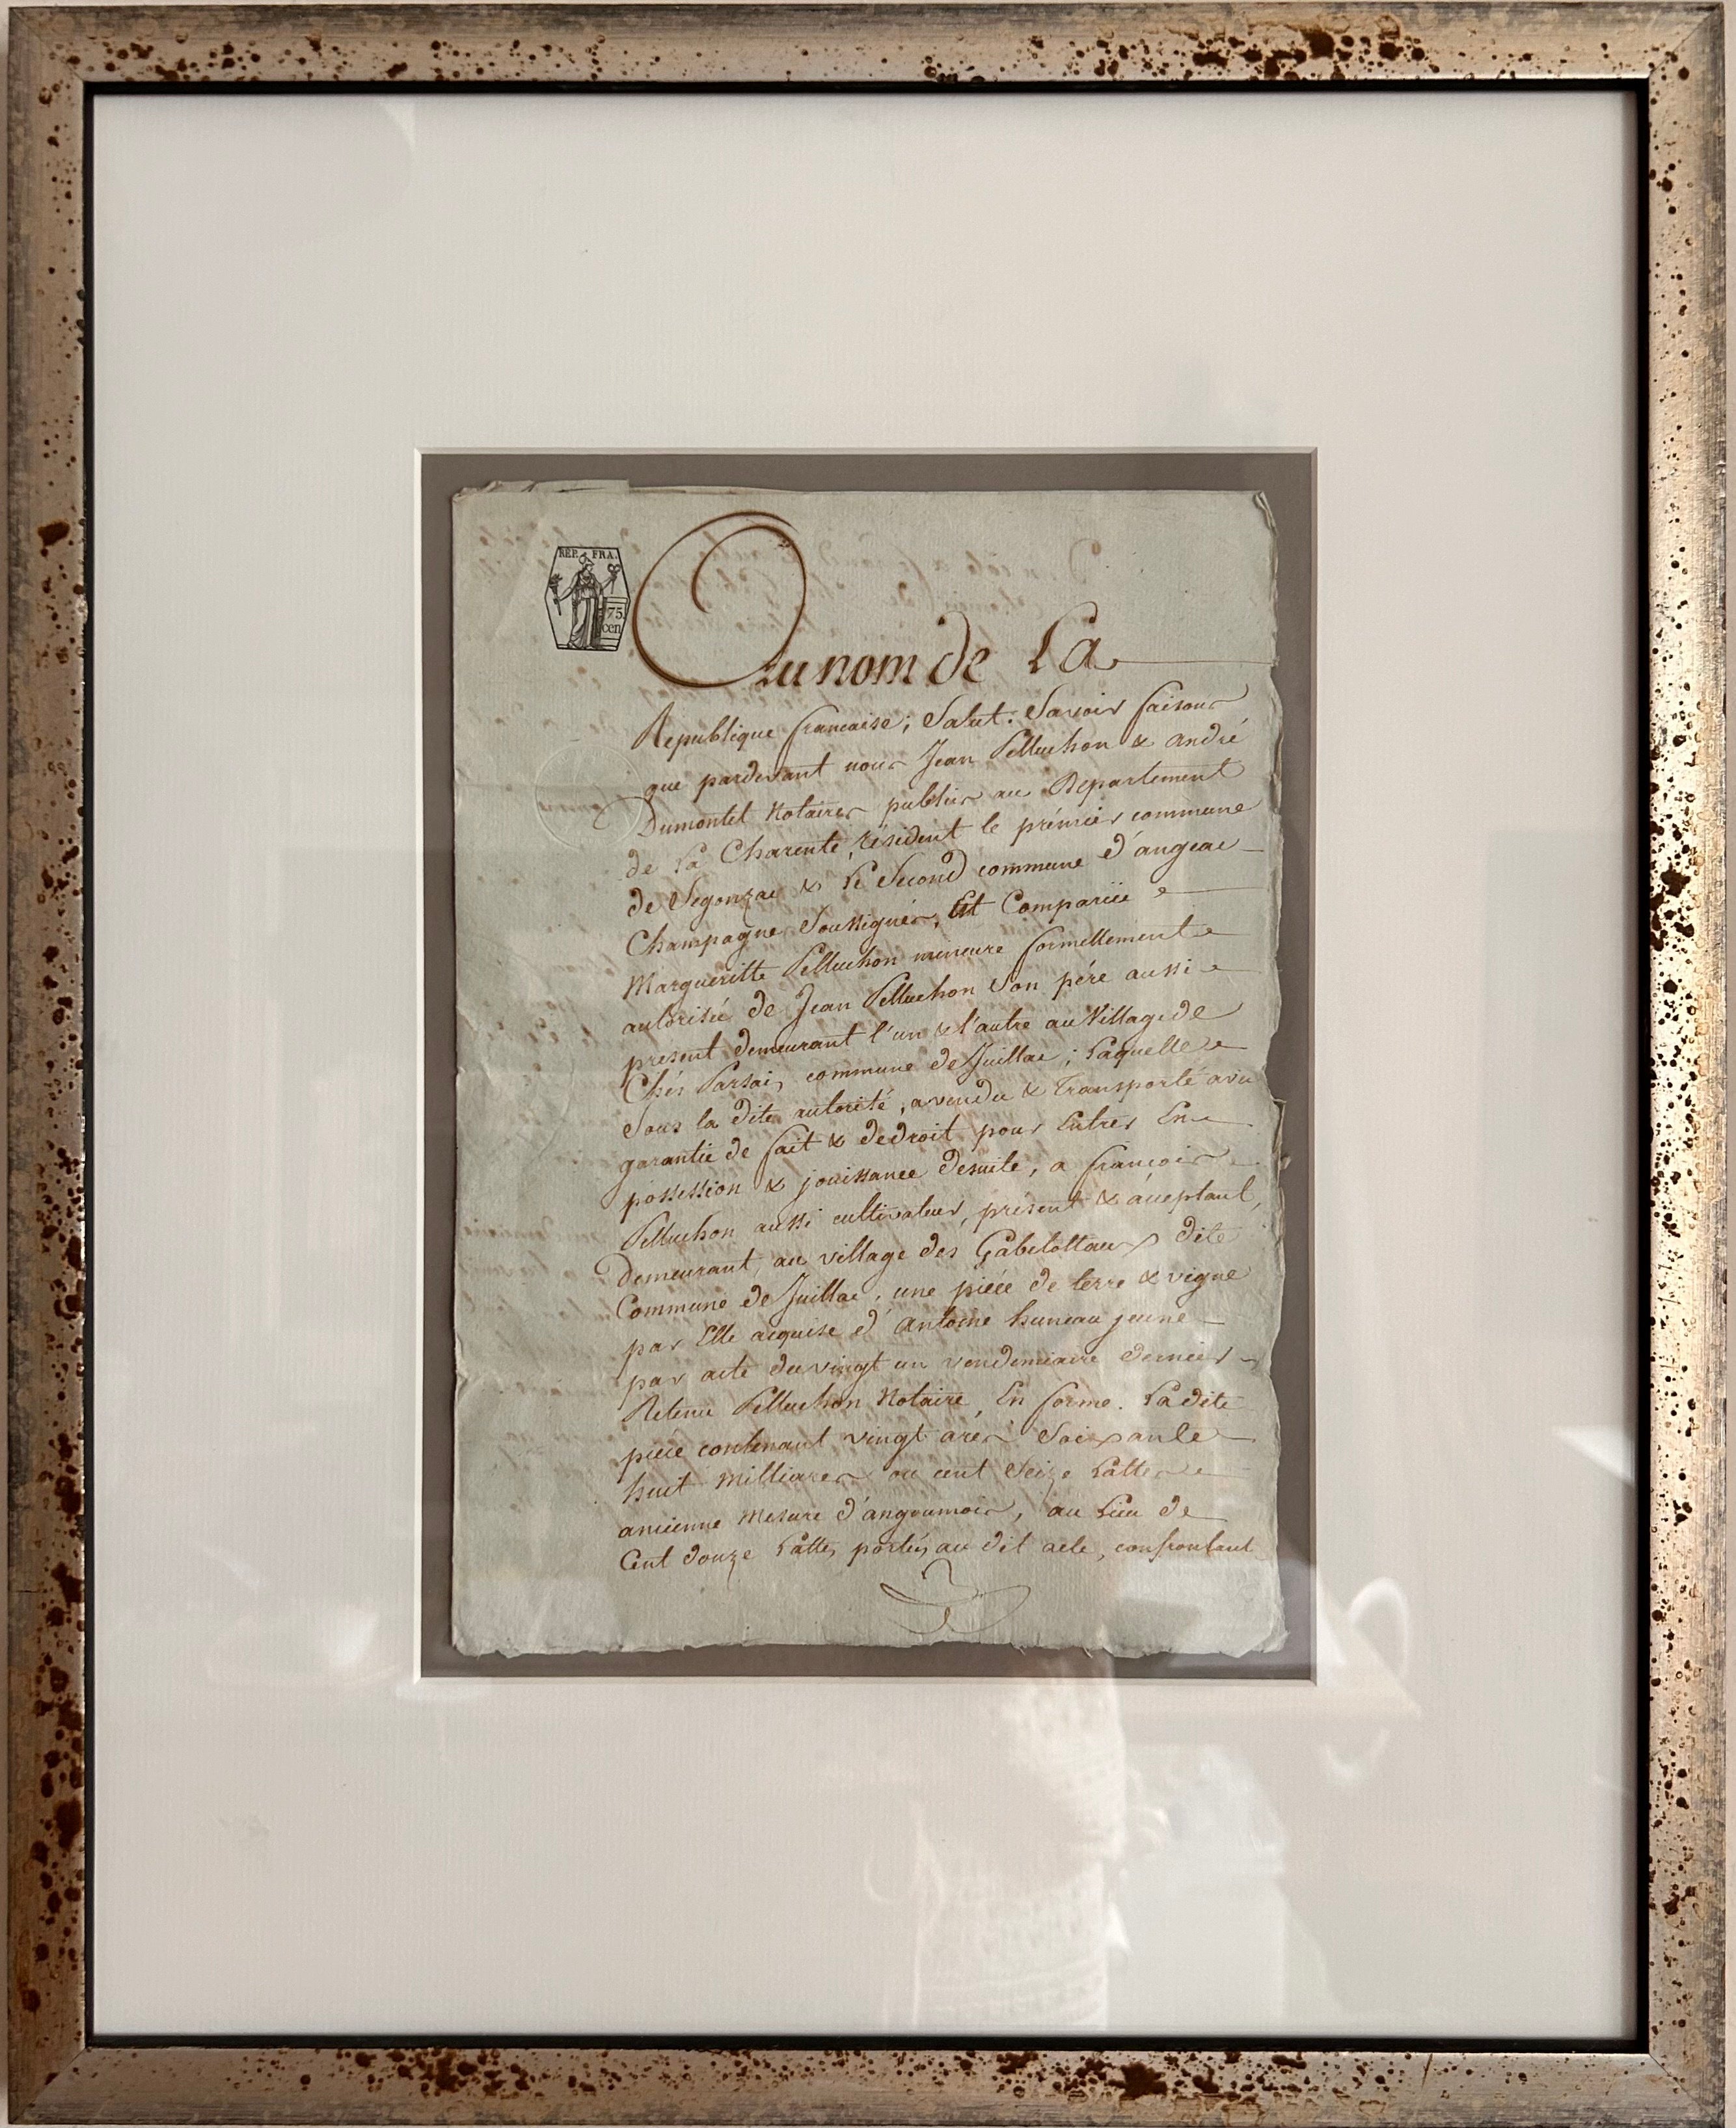 REP. FRA.
75
cen
Au nom de La
Republique francaise; Salut. Savoir faisons
que pardevant nous Jean Pelluchon & andré
Dumontet Notaires publics au Departement
de La Charente, résident le prémier commune
de Segonzac & Le Second commune d'angeac
Champagne Soussignés, Est Comparüe
Margueritte Pelluchon mineure formellement
autorisée de Jean Pelluchon Son pére aussi
present demeurant l'un & l'autre au Village de
Chés commune de Juillac; Laquelle
Sous la dite autorité, a vendu & Transporté avec
garantie de fait & de droit pour Entrer En
possession & jouissance desuite, a francois
Pelluchon aussi cultivateur, présent & acceptant,
Demeurant au village des dite
Commune de Juillac, une piéce de terre & vigne
par Elle acquise d'Antoine huneau jeune
par acte du vingt un vendemiaire dernier
Retenu Pelluchon Notaire, En forme. La dite
piéce contenant vingt ares Soixante
huit Milliares ou cent Seize Lattes
ancienne Mesure d'angoumois, au Lieu de
Cent douze Lattes portés au dit acte, confrontant